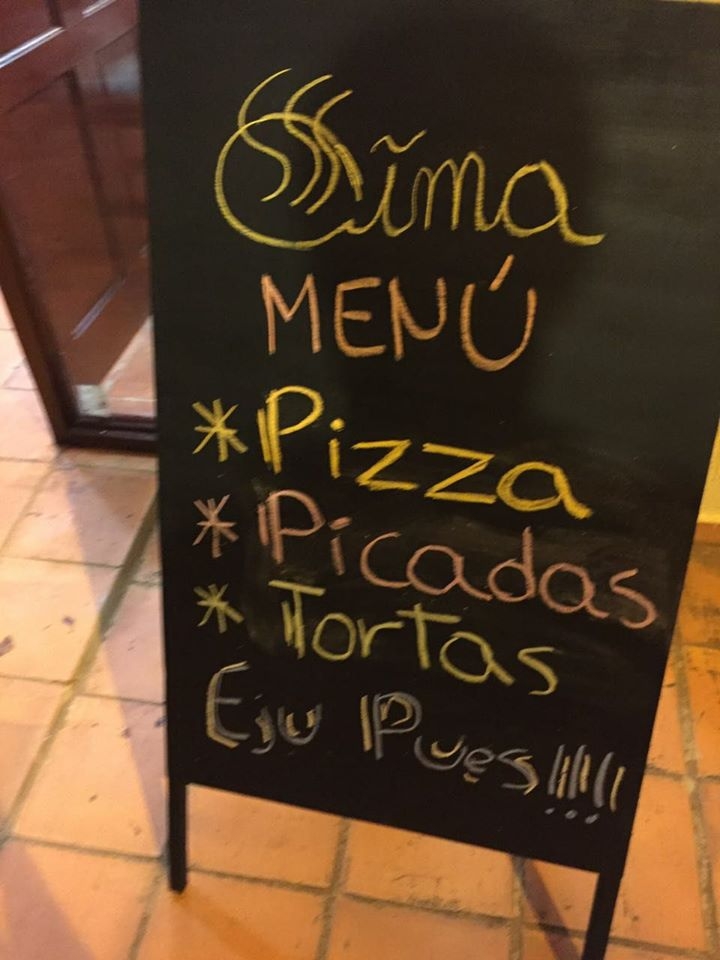 Cima
MENÚ
* Pizza
* Picadas
* Tortas
Eju Pues!!!!!